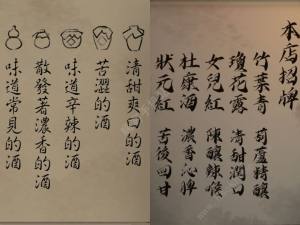 清甜爽口的酒
苦澀的酒
味道辛辣的酒
散發著濃香的酒
味道常見的酒
本店招牌
竹葉青 葫蘆精釀
瓊花露 清甜潤口
女兒紅 陳釀辣喉
杜康海 濃香沁脾
狀元紅 苦後回甘